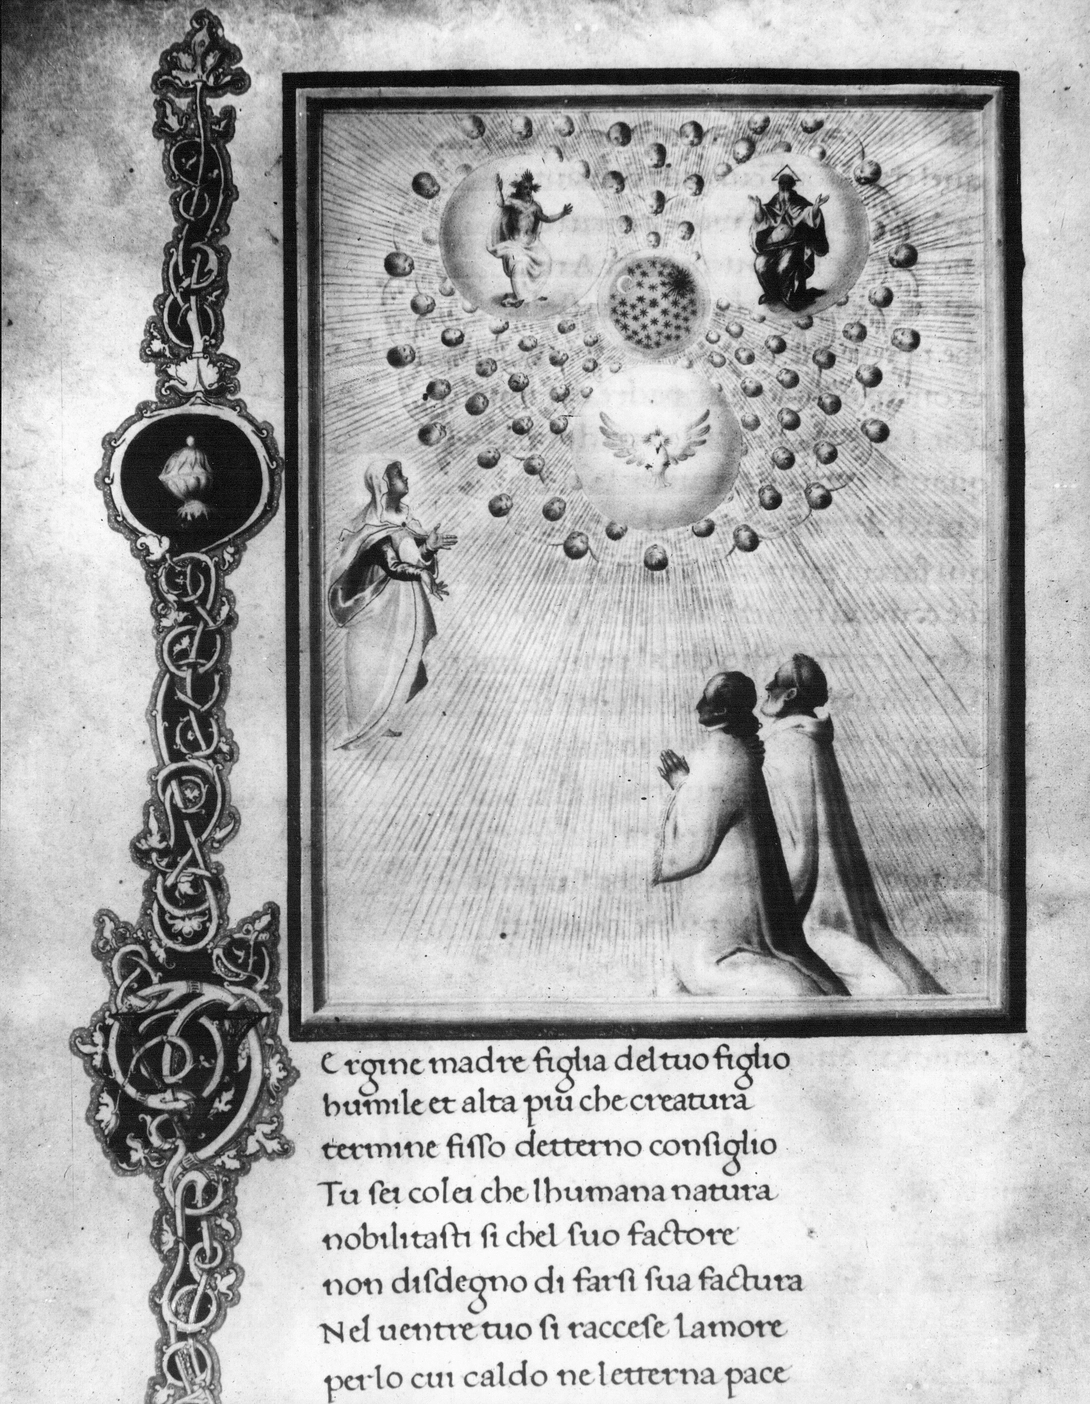 Ergine madre figlia del tuo figlio
humile et alta più che creatura
termine fisso detterno consiglio
Tu sei colei che lhumana natura
nobilitasti si chel suo factore
non disdegno di farsi sua factura
Nel uentre tuo si raccese lamore
per lo cui caldo ne letterna pace